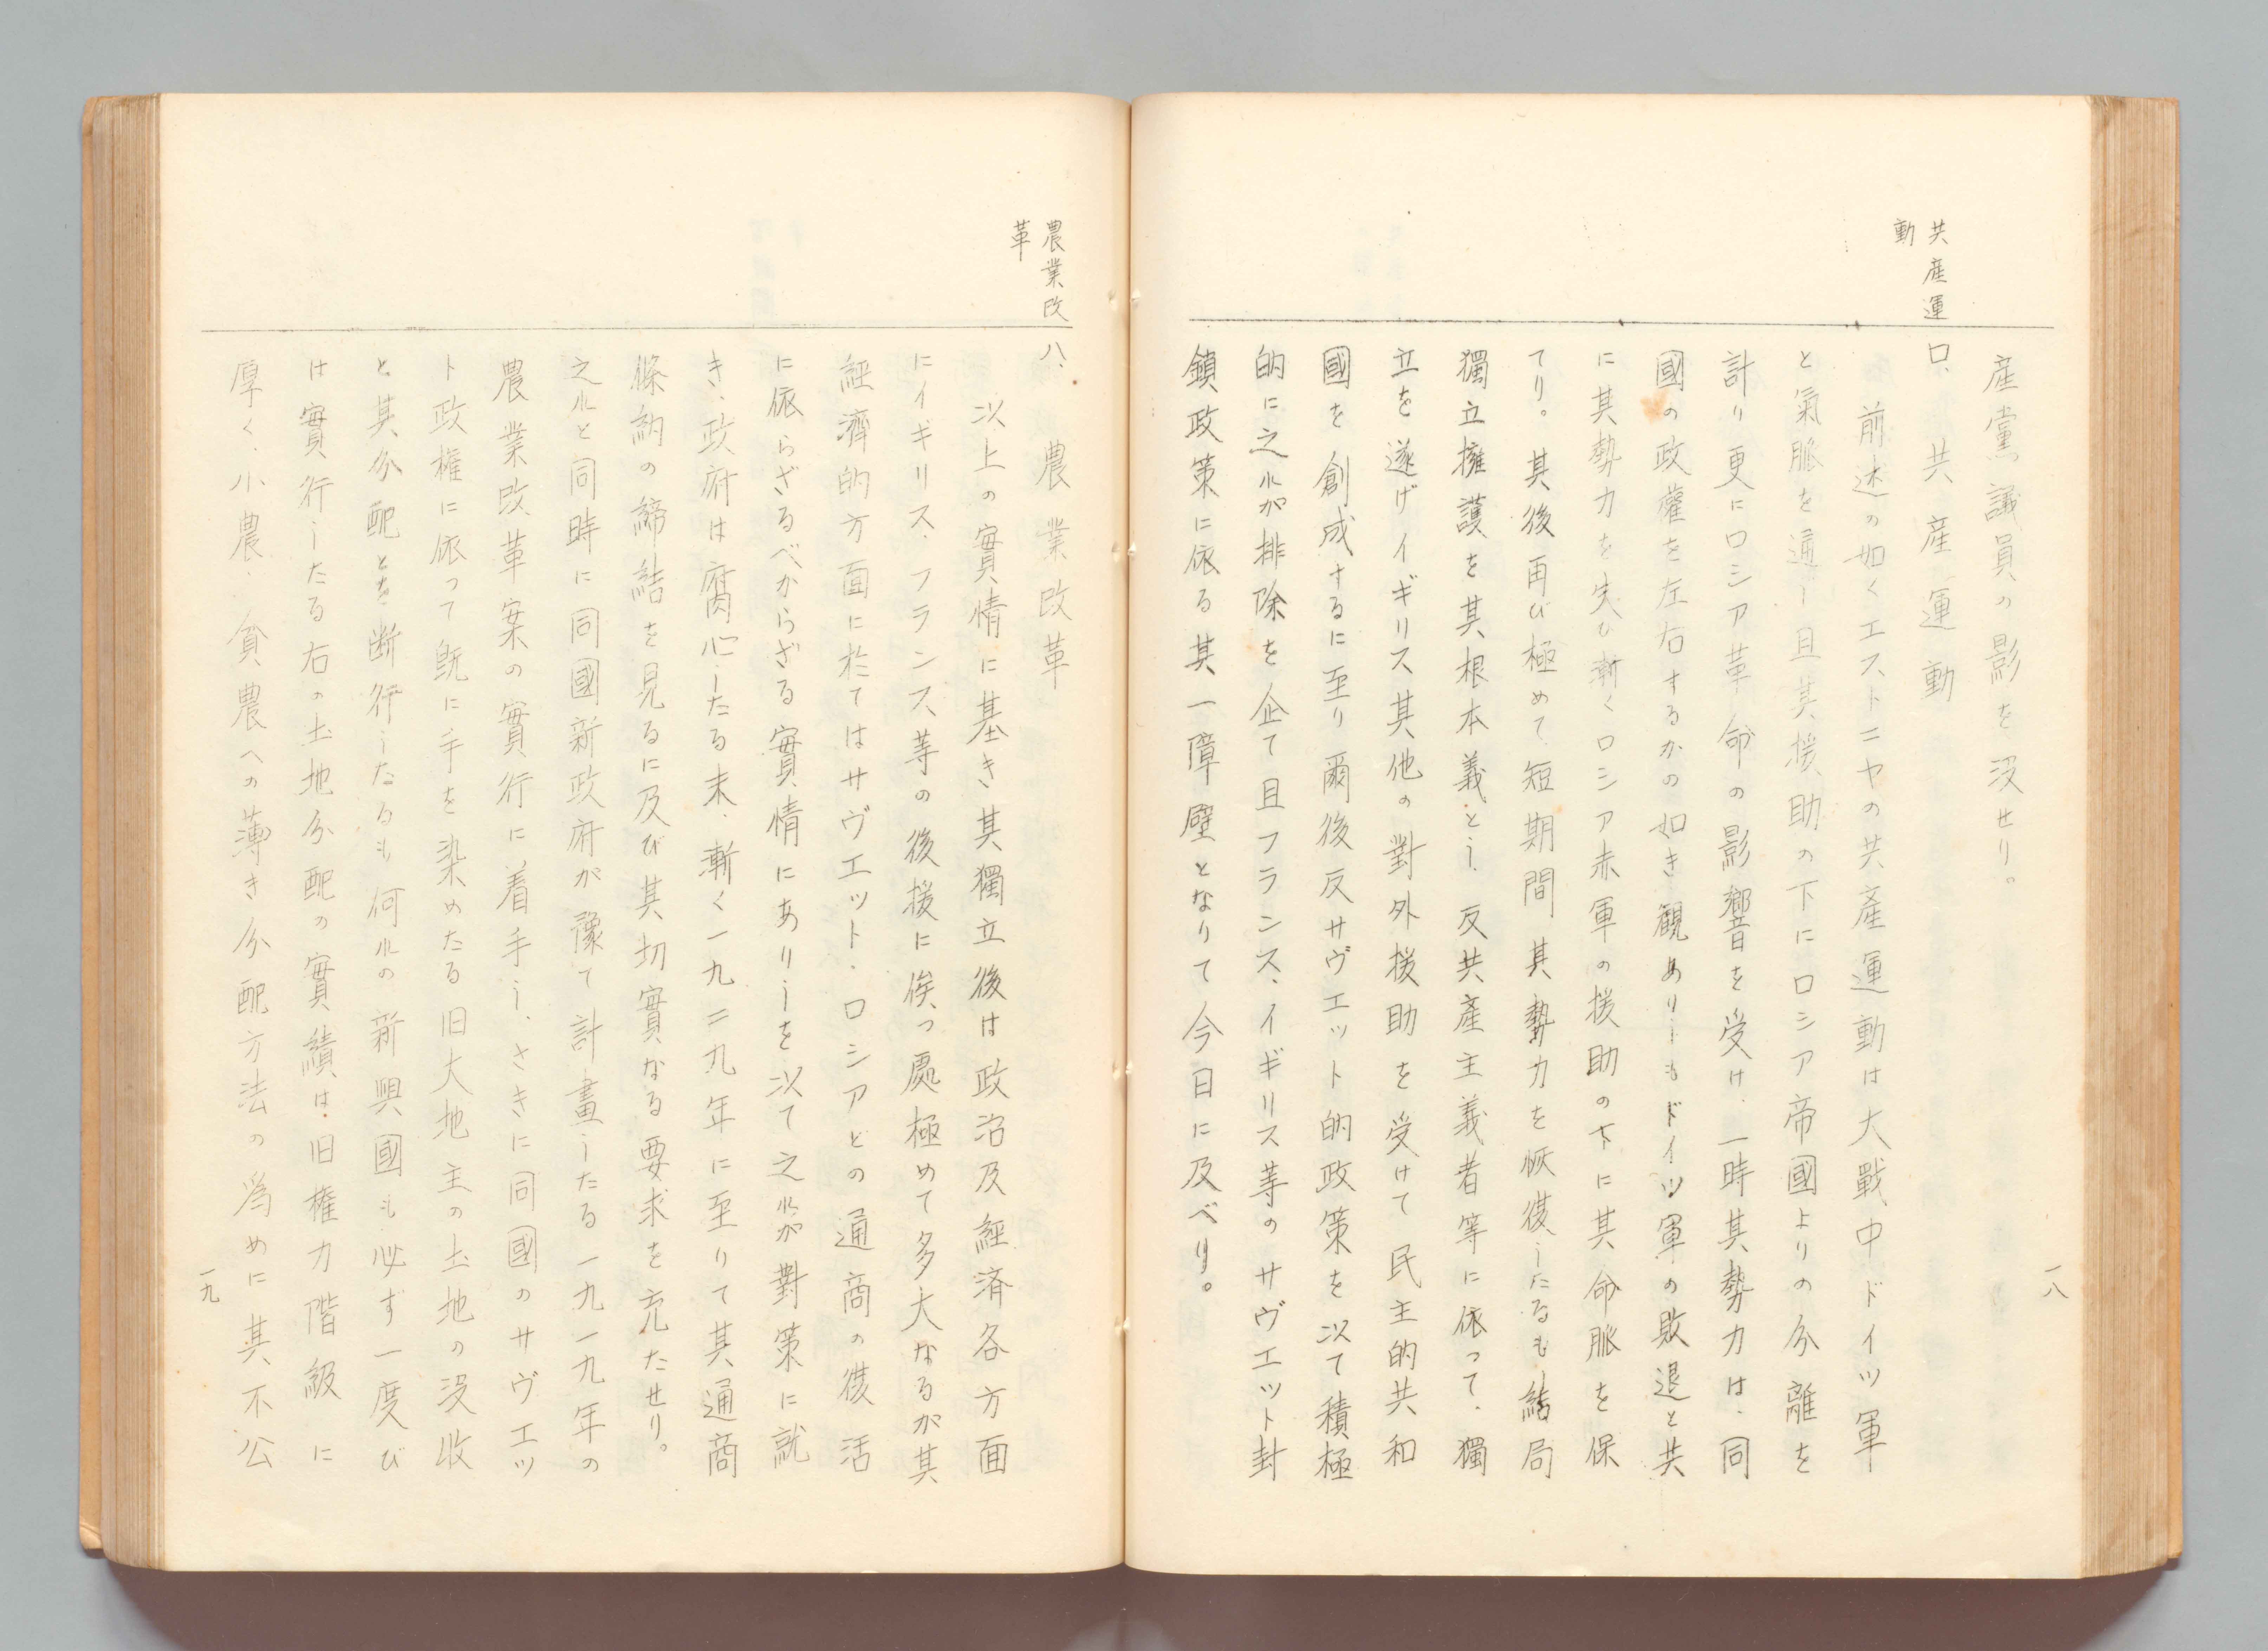 共産運
動
一八
産黨議員の影を没せり。
ロ、共産運動
前述の如くエストニヤの共産運動は大戰中ドイツ軍
と氣脈を通し且其援助の下にロシア帝國よりの分離を
計り更にロシア革命の影響を受け、一時其勢力は、同
國の政權を左右するかの如き觀ありしもドイツ軍の敗退と共
に其勢力を失ひ漸くロシア赤軍の援助の下に其命脈を保
てり。其後再び極めて短期間其勢力を恢復したるも結局
獨立擁護を其根本義とし、反共產主義者等に依って、獨
立を遂げイギリス其他の對外援助を受けて民主的共和
國を創成するに至り爾後反サヴエット的政策を以て積極
的に之れが排除を企て且フランス、イギリス等のサヴエット封
鎖政策に依る其一障壁となりて今日に及べり。
農業改
革
八、農業改革
以上の實情に基き其獨立後は政治及經済各方面
にイギリス、フランス等の後援に俟つ處極めて多大なるが其
経濟的方面に於てはサヴエット、ロシアとの通商の復活
に依らざるべからざる實情にありしを以て之れが對策に就
き、政府は腐心したる末、漸く一九二九年に至りて其通商
條約の締結を見るに及び其切實なる要求を充たせり。
之れと同時に同國新政府が豫て計畫したる一九一九年の
農業改革案の實行に着手し、さきに同國のサヴエッ
ト政権に依って既に手を染めたる旧大地主の土地の没收
と其分配とを断行したるも何れの新興國も必ず一度び
は實行したる右の土地分配の實績は旧権力階級に
厚く、小農、貧農への薄き分配方法の為めに其不公
一九